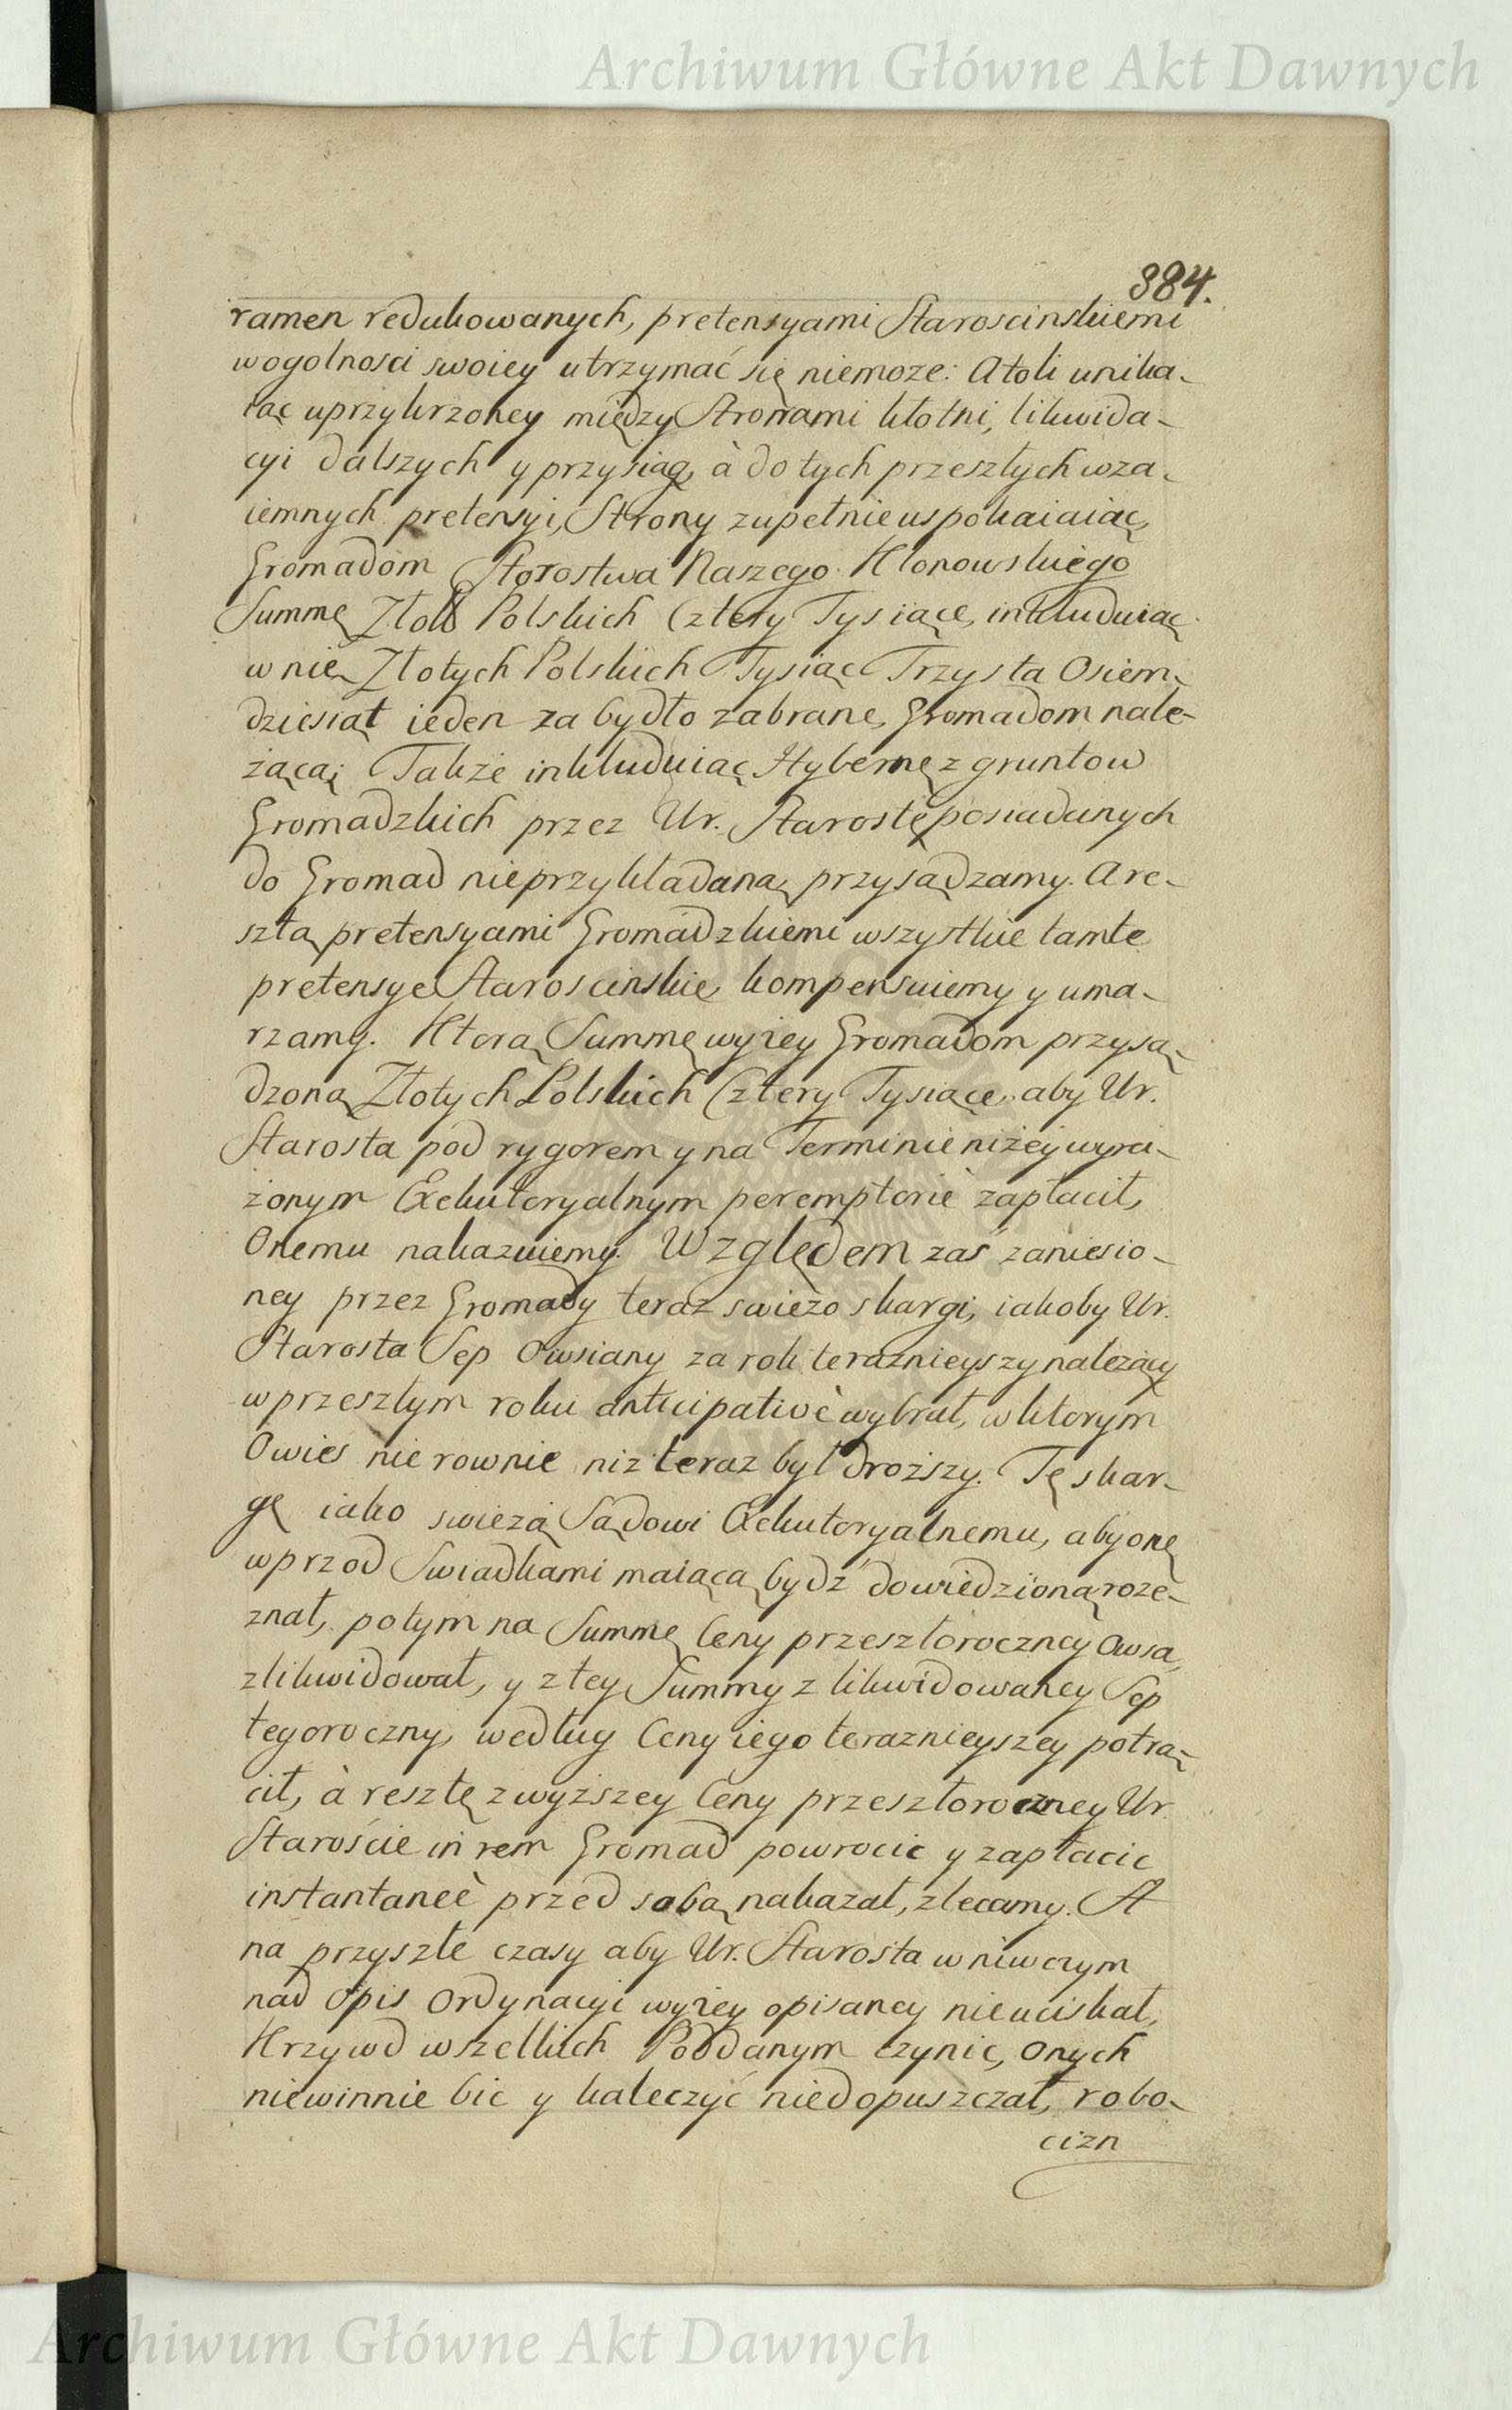 Archiwum Główne Akt Dawnych
384.
ramen redukowanych, pretensyami Staroscinskiemi
wogolnosci swoiey utrzymać się niemoze: Atoli unika-
iąc uprzykrzoney między Stronami kłotni, likwida-
cyi dalszych y przysiąg, à do tych przeszłych wza-
iemnych pretensyi, Strony zupełnie uspokaiaiąc,
Gromadom Starostwa Naszego Klonowskiego
Summę Złoł Polskich Cztery Tysiące, inkluduiąc
w nię Złotych Polskich Tysiąc Trzysta Osiem-
dziesiąt ieden za bydło zabrane, Gromadom nale-
żącą; Także inkluduiąc Hybernę z gruntow
Gromadzkich przez Ur. Starostę posiadanych
do Gromad nieprzykładaną, przysądzamy. A re-
sztą pretensyami Gromadzkiemi wszystkie tamte
pretensye Staroscinskie kompensuiemy y uma-
rzamy. Ktorą Summę wyżey Gromadom przysą-
dzoną Złotych Polskich Cztery Tysiące, aby Ur.
Starosta pod rygorem y na Terminie niżey wyra-
żonym Exekutoryalnym peremptorie zapłacił,
Onemu nakazuiemy. Względem zaś zaniesio-
ney przez Gromady teraz swieżo skargi, iakoby Ur.
Starosta Sep Owsiany za rok teraznieyszy należący
w przeszłym roku anticipativè wybrał, w ktorym
Owies nierownie niż teraz był droższy. Tę skar-
gę iako swieżą Sądowi Exekutoryalnemu, aby onę
wprzod Swiadkami maiącą bydź dowiedzioną roze-
znał, potym na Summę Ceny przeszłoroczney Owsa,
zlikwidował, y z tey Summy zlikwidowaney Sep
tegoroczny, według Ceny iego teraznieyszey potrą-
cił, à resztę z wyższey Ceny przeszłoroczney Ur.
Staroście in rem Gromad powrocic y zapłacic
instantaneè przed sobą nakazał, zlecamy. A
na przyszłe czasy aby Ur. Starosta w niwczym
nad opis Ordynacyi wyżey opisaney nieuciskał,
Krzywd wszelkich Poddanym czynic, Onych
niewinnie bic y kaleczyć niedopuszczał, robo-
cizn
Archiwum Główne Akt Dawnych